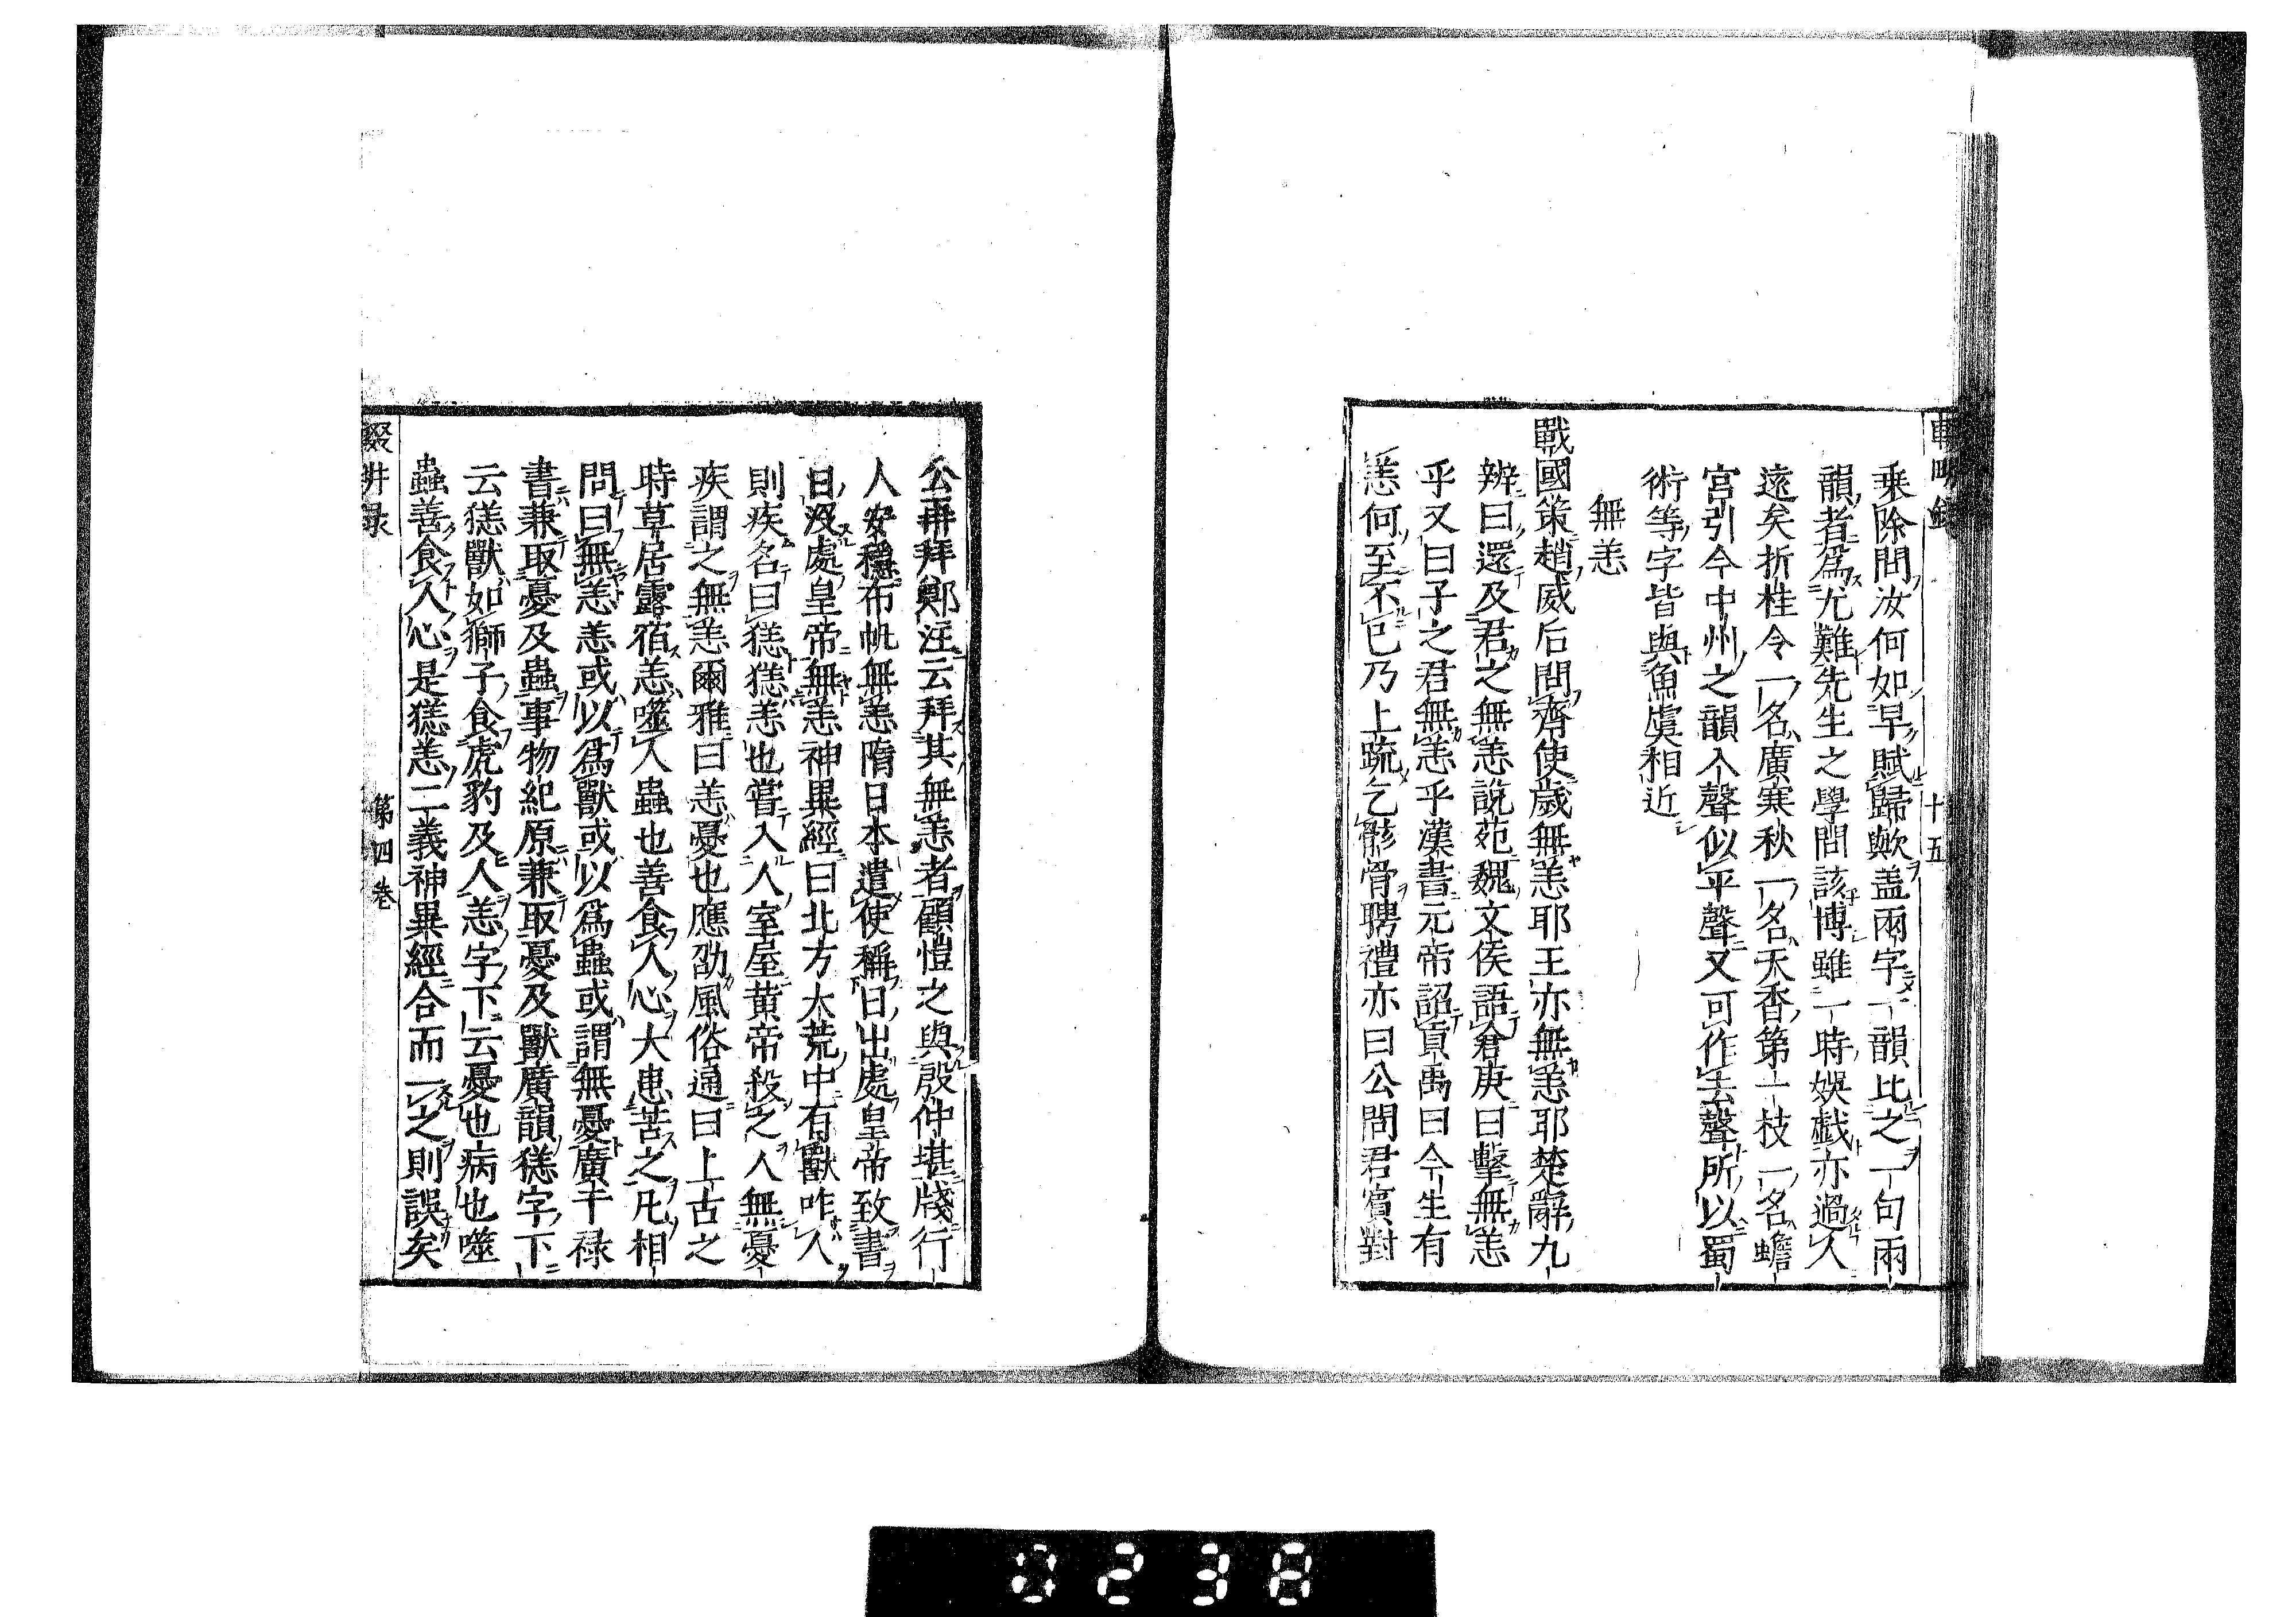 十五
乗除問汝何如早賦歸歟盖兩字一韻比之一句兩
韻者爲尤難先生之學問該博雖一時娯戯亦過人
遠矣折桂令一名廣寒秋一名天香第一枝一名蟾
宮引今中州之韻入聲似平聲又可作去聲所以蜀
術等字皆與魚虞相近
無恙
戰國策趙威后問齊使歳無恙耶王亦無恙耶楚辭九
辨曰還及君之無恙說苑魏文侯語倉庚曰擊無恙
乎又曰子之君無恙乎漢書元帝詔貢禹曰今生有
恙何至不已乃上疏乞骸骨聘禮亦曰公問君賓對
公再拜鄭注云拜其無恙者顧愷之與殷仲堪牋行
人安穩布帆無恙隋日本遣使稱日出處皇帝致書
日沒處皇帝無恙神異經曰北方大荒中有獸咋人
則疾名曰㺊㺊恙也嘗入人室屋黄帝殺之人無憂
疾謂之無恙爾雅曰恙憂也應劭風俗通曰上古之
時草居露宿恙噬人蟲也善食人心大患苦之凡相
問曰無恙恙或以爲獸或以爲蟲或謂無憂廣干禄
書兼取憂及蟲事物紀原兼取憂及獸廣韻㺊字下
云㺊獸如獅子食虎豹及人恙字下云憂也病也噬
蟲善食人心是㺊恙二義神異經合而一之則誤矣
輟耕录
第四卷
0238